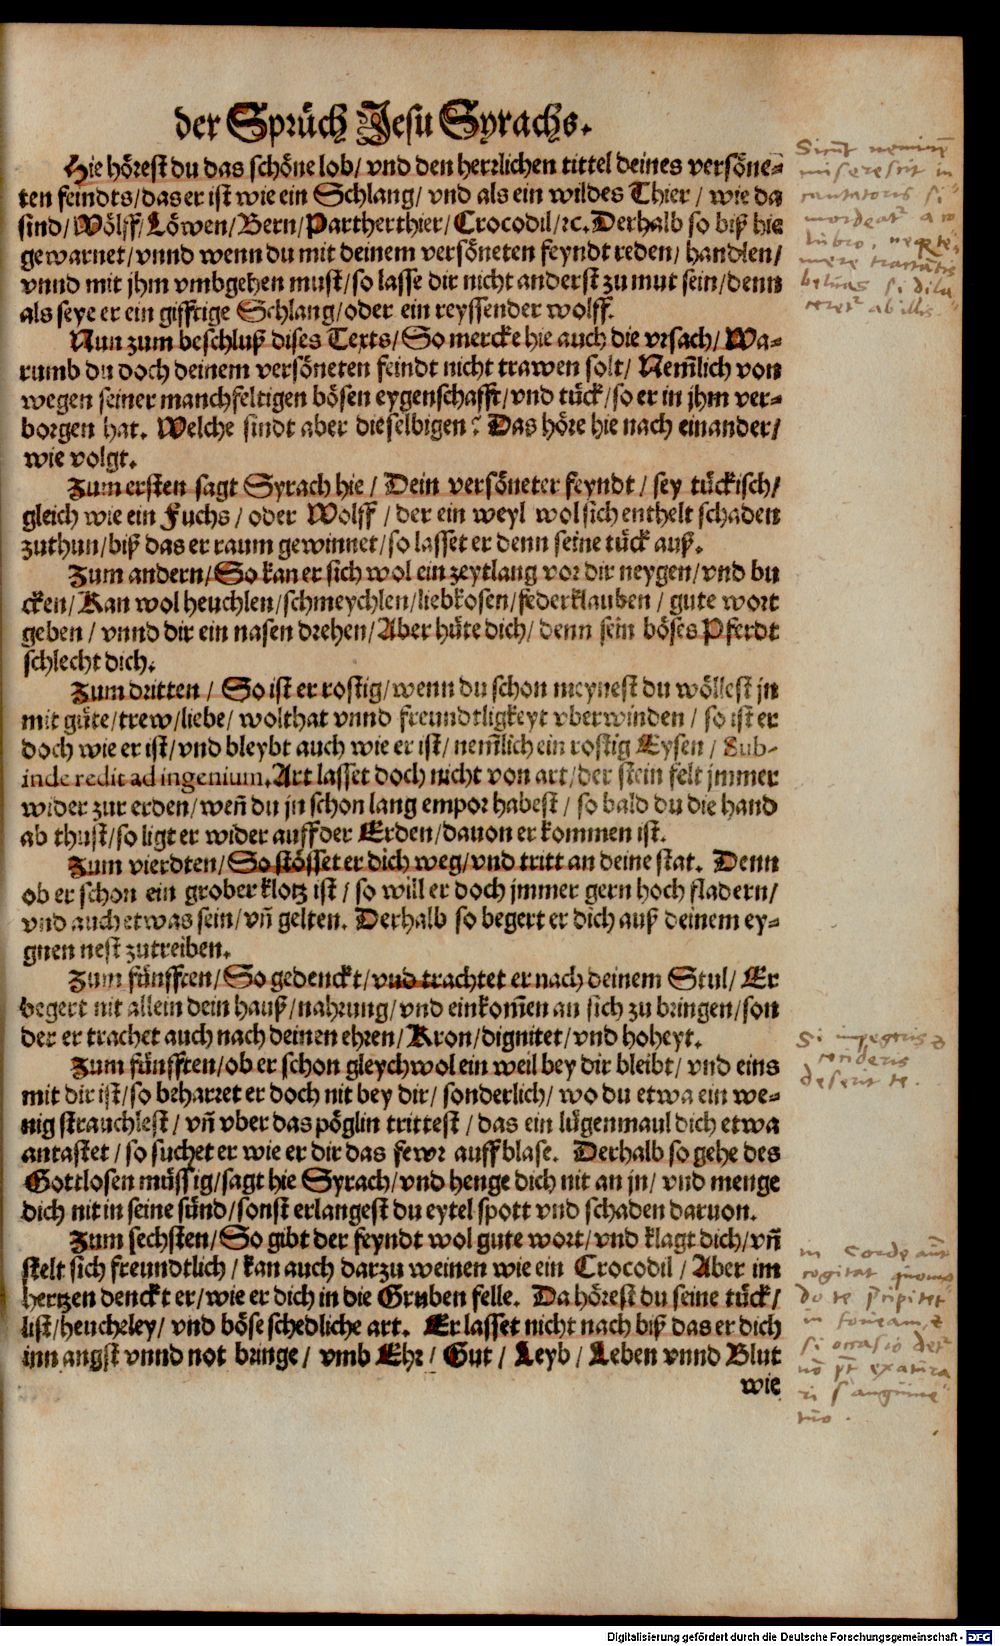 der Sprüch Jesu Syrachs.
Hie hörest du das schöne lob/ vnd den herrlichen tittel deines versöne-
ten feindts/ das er ist wie ein Schlang/ vnd als ein wildes Thier/ wie da
sind/ Wölff/ Löwen/ Bern/ Partherthier/ Crocodil/ ꝛc. Derhalb so biß hie
gewarnet/ vnnd wenn du mit deinem versöneten feyndt reden/ handlen/
vnnd mit jhm vmbgehen must/ so lasse dir nicht anderst zu mut sein/ denn
als seye er ein gifftige Schlang/ oder ein reyssender wolff.
Nun zum beschluß dises Texts/ So mercke hie auch die vrsach/ Wa-
rumb du doch deinem versöneten feindt nicht trawen solt/ Nem̃lich von
wegen seiner manchfeltigen bösen eygenschafft/ vnd tück/ so er in jhm ver-
borgen hat. Welche sindt aber dieselbigen? Das höre hie nach einander/
wie volgt.
Zum ersten sagt Syrach hie/ Dein versöneter feyndt/ sey tückisch/
gleich wie ein Fuchs/ oder Wolff/ der ein weyl wol sich enthelt schaden
zuthun/ biß das er raum gewinnet/ so lasset er denn seine tück auß.
Zum andern/ So kan er sich wol ein zeytlang vor dir neygen/ vnd bu
cken/ Kan wol heuchlen/ schmeychlen/ liebkosen/ federklauben/ gute wort
geben/ vnnd dir ein nasen drehen/ Aber hüte dich/ denn sein böses Pferdt
schlecht dich.
Zum dritten/ So ist er rostig/ wenn du schon meynest du wöllest jn
mit güte/ trew/ liebe/ wolthat vnnd freundtligkeyt vberwinden/ so ist er
doch wie er ist/ vnd bleybt auch wie er ist/ nem̃lich ein rostig Eysen/ Sub-
inde redit ad ingenium. Art lasset doch nicht von art/ der stein felt jmmer
wider zur erden/ weñ du jn schon lang empor habest/ so bald du die hand
ab thust/ so ligt er wider auff der Erden/ dauon er kommen ist.
Zum vierdten/ So stösset er dich weg/ vnd tritt an deine stat. Denn
ob er schon ein grober klotz ist/ so will er doch jmmer gern hoch fladern/
vnd auch etwas sein/ vñ gelten. Derhalb so begert er dich auß deinem ey-
gnen nest zutreiben.
Zum fünfften/ So gedenckt/ vnd trachtet er nach deinem Stul/ Er
begert nit allein dein hauß/ nahrung/ vnd einkom̃en an sich zu bringen/ son
der er trachet auch nach deinen ehren/ Kron/ dignitet/ vnd hoheyt.
Zum fünfften/ ob er schon gleychwol ein weil bey dir bleibt/ vnd eins
mit dir ist/ so beharret er doch nit bey dir/ sonderlich/ wo du etwa ein we-
nig strauchlest/ vñ vber das pöglin trittest/ das ein lügenmaul dich etwa
antastet/ so suchet er wie er dir das fewr auffblase. Derhalb so gehe des
Gottlosen müssig/ sagt hie Syrach/ vnd henge dich nit an jn/ vnd menge
dich nit in seine sünd/ sonst erlangest du eytel spott vnd schaden daruon.
Zum sechsten/ So gibt der feyndt wol gute wort/ vnd klagt dich/ vñ
stelt sich freundtlich/ kan auch darzu weinen wie ein Crocodil/ Aber im
hertzen denckt er/ wie er dich in die Gruben felle. Da hörest du seine tück/
list/ heucheley/ vnd böse schedliche art. Er lasset nicht nach biß das er dich
inn angst vnnd not bringe/ vmb Ehr/ Gut/ Leyb/ Leben vnnd Blut
wie
miserescit in
cantatoris si
ab illis.
deserit te.
in Corde
cogitat
in foueam,
si occasio
Digitalisierung gefördert durch die Deutsche Forschungsgemeinschaft - DFG